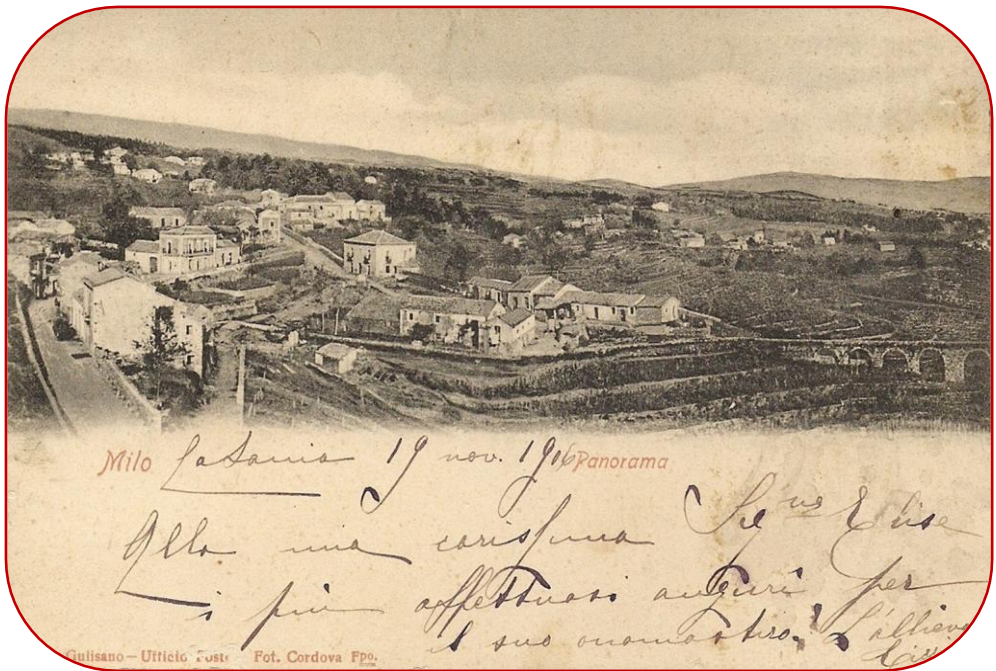 Milo Catania 19 nov. 1916 Panorama
Alla mia carissima Sig.na Elise
i più affettuosi auguri per
il suo onomastico. L'allieva
Gulisano – Ufficio Poste Fot. Cordova Fpo.